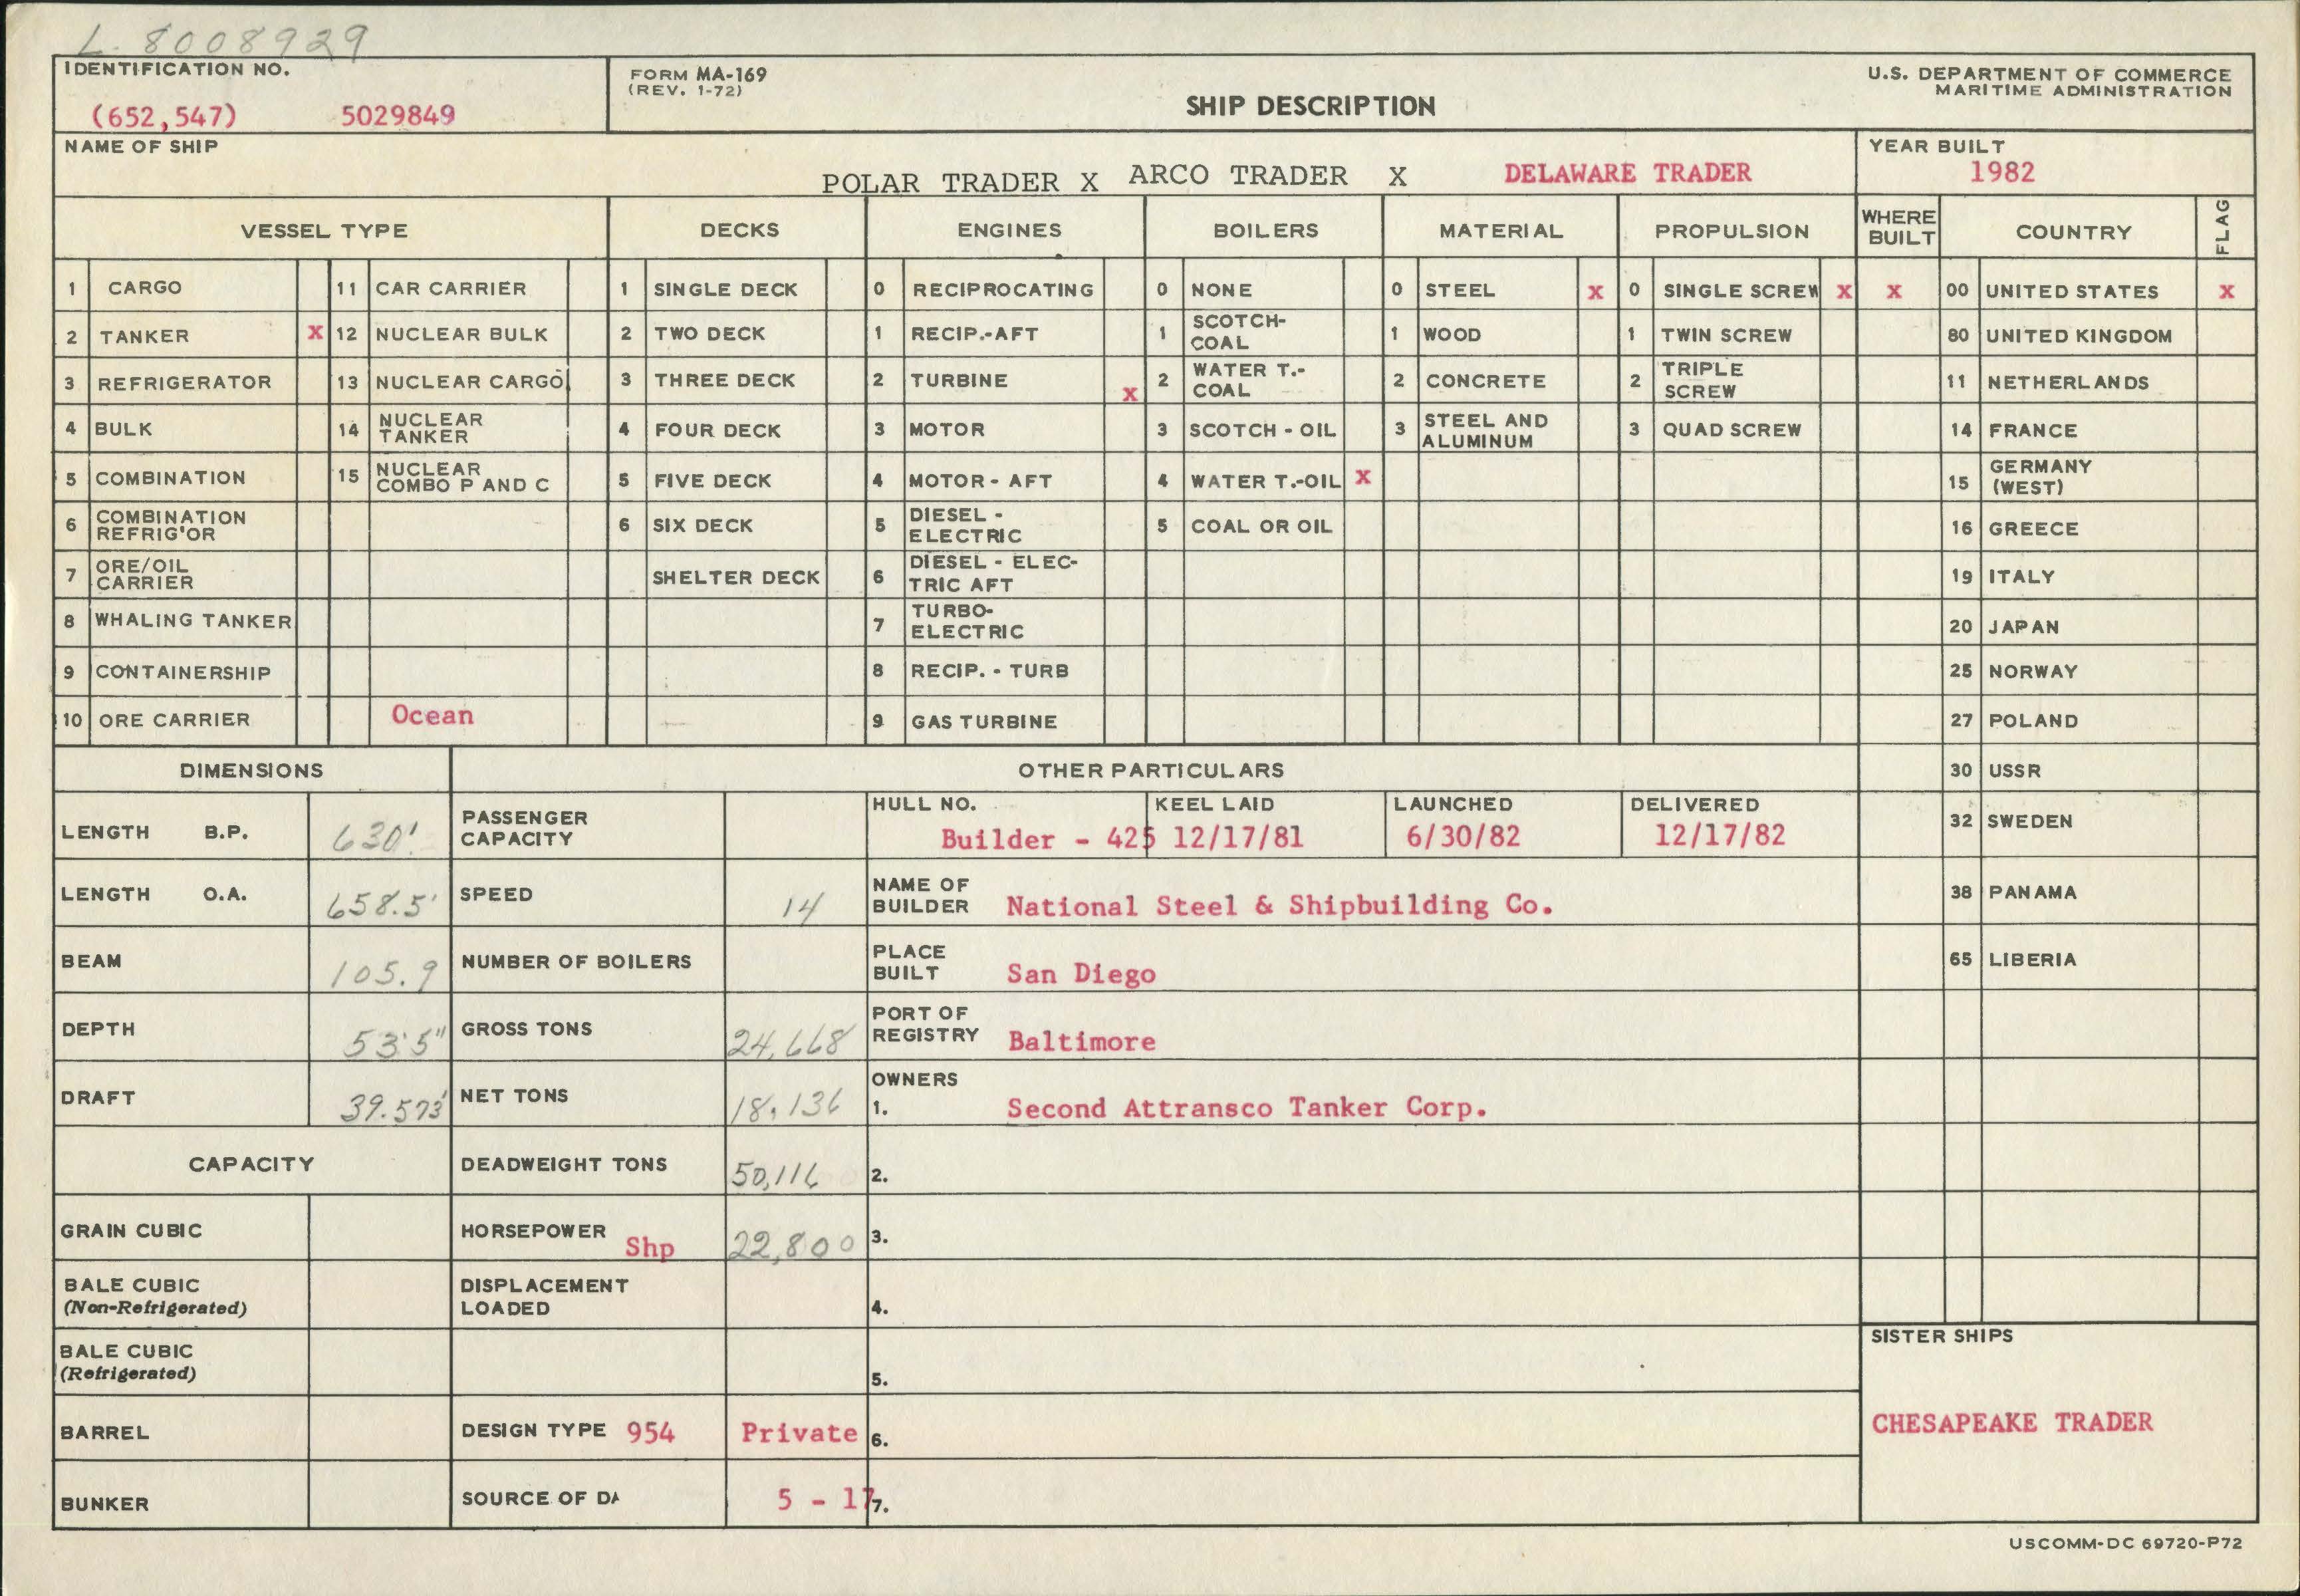 L. 8008929
IDENTIFICATION NO.
(652,547) 5029849
FORM MA-169
(REV. 1-72)
SHIP DESCRIPTION
U.S. DEPARTMENT OF COMMERCE
MARITIME ADMINISTRATION
NAME OF SHIP
POLAR TRADER X ARCO TRADER X DELAWARE TRADER
YEAR BUILT
1982
VESSEL TYPE DECKS ENGINES BOILERS MATERIAL PROPULSION WHERE BUILT COUNTRY FLAG
1 CARGO 11 CAR CARRIER 1 SINGLE DECK 0 RECIPROCATING 0 NONE 0 STEEL X 0 SINGLE SCREW X X 00 UNITED STATES X
2 TANKER X 12 NUCLEAR BULK 2 TWO DECK 1 RECIP.-AFT 1 SCOTCH-COAL 1 WOOD 1 TWIN SCREW 80 UNITED KINGDOM
3 REFRIGERATOR 13 NUCLEAR CARGO 3 THREE DECK 2 TURBINE X 2 WATER T.-COAL 2 CONCRETE 2 TRIPLE SCREW 11 NETHERLANDS
4 BULK 14 NUCLEAR TANKER 4 FOUR DECK 3 MOTOR 3 SCOTCH - OIL 3 STEEL AND ALUMINUM 3 QUAD SCREW 14 FRANCE
5 COMBINATION 15 NUCLEAR COMBO P AND C 5 FIVE DECK 4 MOTOR - AFT 4 WATER T.-OIL X 15 GERMANY (WEST)
6 COMBINATION REFRIG'OR 6 SIX DECK 5 DIESEL - ELECTRIC 5 COAL OR OIL 16 GREECE
7 ORE/OIL CARRIER SHELTER DECK 6 DIESEL - ELECTRIC AFT 19 ITALY
8 WHALING TANKER 7 TURBO-ELECTRIC 20 JAPAN
9 CONTAINERSHIP 8 RECIP. - TURB 25 NORWAY
10 ORE CARRIER Ocean 9 GAS TURBINE 27 POLAND
DIMENSIONS OTHER PARTICULARS 30 USSR
LENGTH B.P. 630' PASSENGER CAPACITY HULL NO. Builder - 425 KEEL LAID 12/17/81 LAUNCHED 6/30/82 DELIVERED 12/17/82 32 SWEDEN
LENGTH O.A. 658.5' SPEED 14 NAME OF BUILDER National Steel & Shipbuilding Co. 38 PANAMA
BEAM 105.9 NUMBER OF BOILERS PLACE BUILT San Diego 65 LIBERIA
DEPTH 53'5" GROSS TONS 24,668 PORT OF REGISTRY Baltimore
DRAFT 39.573' NET TONS 18,136 OWNERS 1. Second Attransco Tanker Corp.
CAPACITY DEADWEIGHT TONS 50,116 2.
GRAIN CUBIC HORSEPOWER Shp 22,800 3.
BALE CUBIC (Non-Refrigerated) DISPLACEMENT LOADED 4.
BALE CUBIC (Refrigerated) 5.
SISTER SHIPS
BARREL DESIGN TYPE 954 Private 6. CHESAPEAKE TRADER
BUNKER SOURCE OF DA 5 - 17 7.
USCOMM-DC 69720-P72